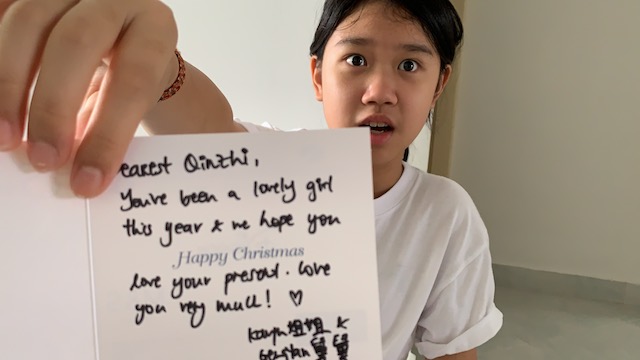 earest Qinzhi,
You've been a lovely girl
this year & we hope you
Happy Christmas
love your present. Love
you very much! ♡
姐姐 &